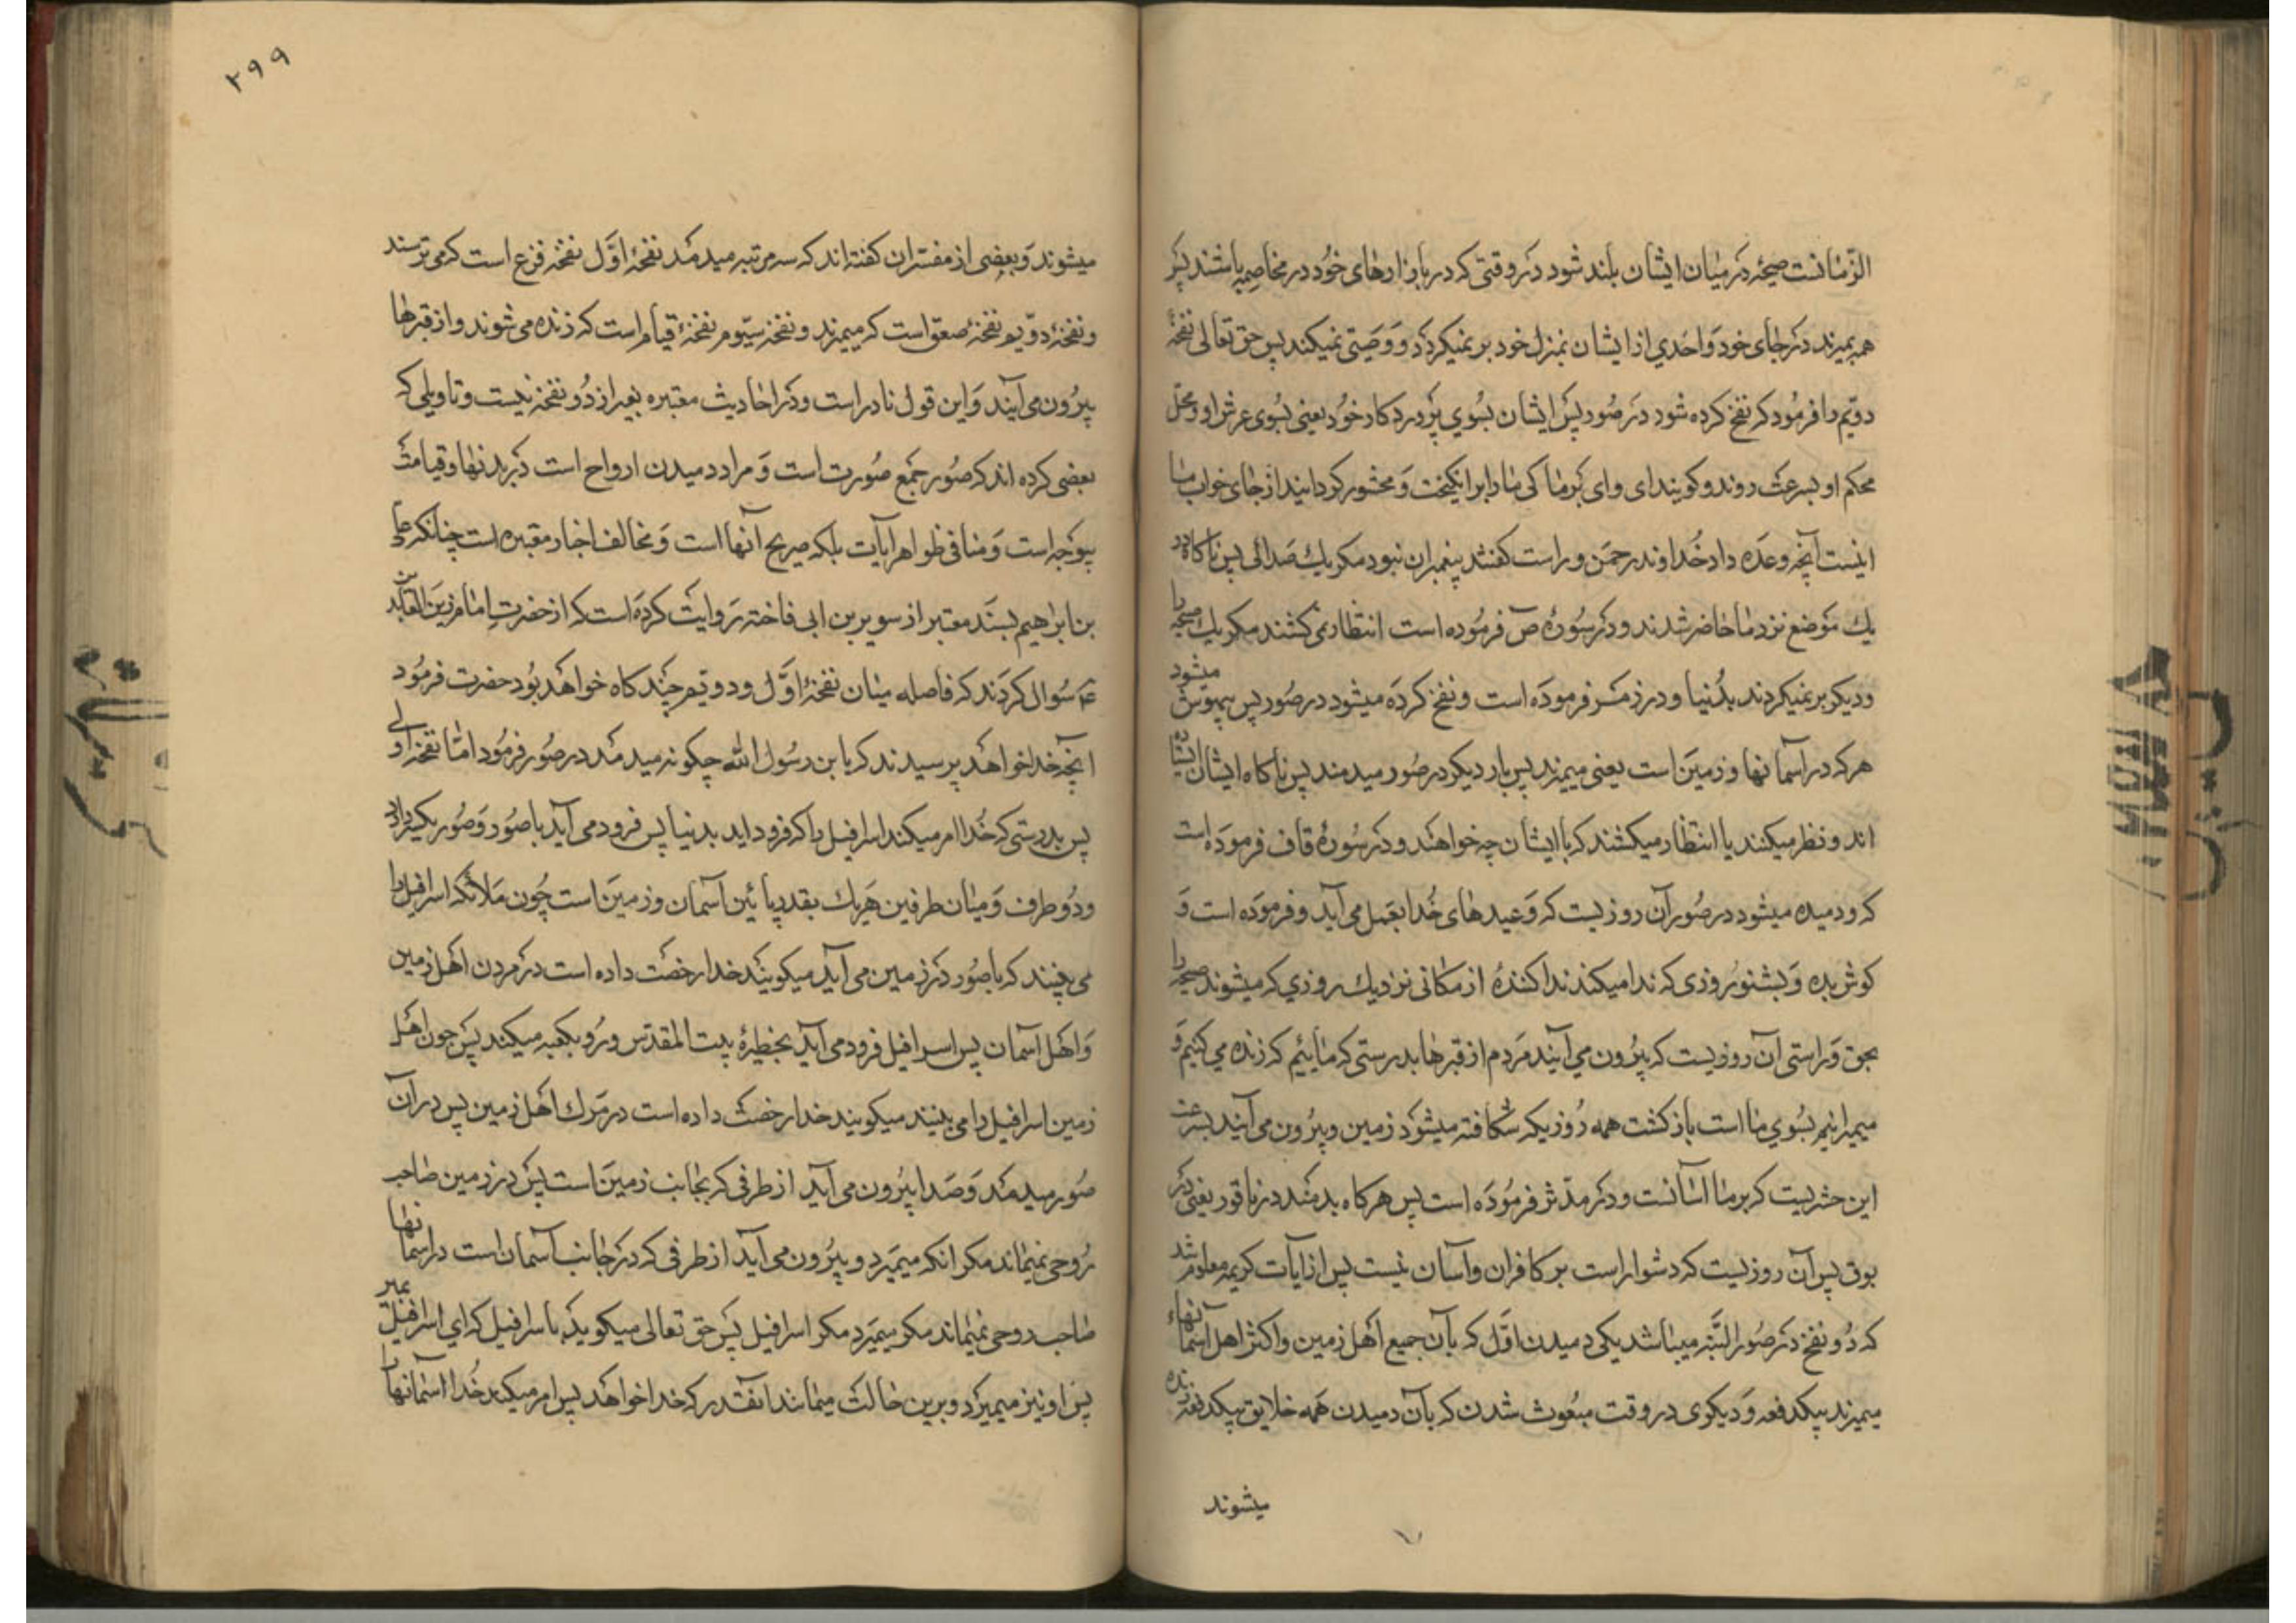 الزّمانست صیحه در میان ایشان بلند شود در وقتی که در بازارهای خود در مخاصمه باشند پس
همه بمیرند در جای خود و احدی از ایشان بمنزل خود بر نمیکردد و وصیتی نمیکند پس حق تعالی نفخهٔ
دویم را فرمود که نفخ کرده شود در صور پس ایشان بسوی پروردکار خود یعنی بسوی عرش او و محل
محکم او بسرعت روند و کویند ای وای بر ما کی ما را برانکیخت و محشور کردانید از جای خواب ما
اینست آنچه وعده داد خداوند رحمن و راست کفتند پیغمبران نبود مکر یك صدائی پس ناکاه در
یك موضع نزد ما حاضر شدند و در سورهٔ ص فرموده است انتظار نمی کشند مکر یك صیحه را
و دیکر بر نمیکردند بدنیا و در زمر فرموده است و نفخ کرده میشود در صور پس بیهوش میشود
هر که در اسمانها و زمین است یعنی میمیرند پس بار دیکر در صور میدمند پس ناکاه ایشان ایستاده
اند و نظر میکنند یا انتظار میکشند که با ایشان چه خواهند و در سورهٔ قاف فرموده است
که و دمیده میشود در صور آن روزیست که وعیدهای خدا بعمل می آید و فرموده است و
کوش بده و بشنو روزی که ندا میکند ندا کنندهٔ از مکانی نزدیك روزی که میشوند صیحه را
بحق و راستی آن روزیست که بیرون می آیند مردم از قبرها بدرستی که مائیم که زنده می کنیم و
میمیرانیم بسوی ما است بازکشت همه روزیکه شکافته میشود زمین و بیرون می آیند بسرعت
این حشریست که بر ما اسانست و در مدّثر فرموده است پس هرکاه بدمند در ناقور یعنی در
بوق پس آن روزیست که دشوار است بر کافران و آسان نیست پس از ایات کریمه معلوم شد
که دو نفخ در صور البتّه میباشد یکی دمیدن اوّل که بآن جمیع اهل زمین و اکثر اهل اسمانهاء
میمیرند بیکدفعه و دیکری در وقت مبعوث شدن که بآن دمیدن همه خلایق بیکدفعه زنده
میشوند
۲۹۹
میشوند و بعضی از مفسّران کفته اند که سه مرتبه میدمد نفخهٔ اوّل نفخهٔ فزع است که می ترسند
و نفخهٔ دوّیم نفخهٔ صعق است که میمیرند و نفخهٔ سیّوم نفخهٔ قیام است که زنده می شوند و از قبرها
بیرون می آیند و این قول نادر است و در احادیث معتبره بغیر از دو نفخه نیست و تاویلی که
بعضی کرده اند که صور جمع صورت است و مراد دمیدن ارواح است در بدنها و قیامت
بیوجه است و منافی ظواهر آیات بلکه صریح آنها است و مخالف اخبار معتبره است چنانکه علی
بن ابراهیم بسند معتبر از سویر بن ابی فاخته روایت کرده است که از حضرت امام زین العابدین
ع سوال کردند که فاصله میان نفخهٔ اوّل و دویم چند کاه خواهد بود حضرت فرمود
انچه خدا خواهد پرسیدند که یا بن رسول الله چکونه میدمد در صور فرمود امّا نفخه اولی
پس بدرستی که خدا امر میکند اسرافیل را که فرود اید بدنیا پس فرود می آید با صور و صور یکسر دارد
و دو طرف و میان طرفین هر یك بقدر پائین آسمان و زمین است چون ملائکه اسرافیل را
می بینند که با صور در زمین می آید میکویند خدا رخصت داده است در مردن اهل زمین
و اهل آسمان پس اسرافیل فرود می آید بحظیرهٔ بیت المقدس و رو بکعبه میکند پس چون اهل
زمین اسرافیل را می بینند میکویند خدا رخصت داده است در مرك اهل زمین پس در آن
صور میدمد و صدا بیرون می آید از طرفی که بجانب زمین است پس در زمین صاحب
روحی نمیماند مکر انکه میمیرد و بیرون می آید از طرفی که در جانب آسمان است در اسمانها
صاحب روحی نمیماند مکر میمیرد مکر اسرافیل پس حق تعالی میکوید باسرافیل که ای اسرافیل بمیر
پس او نیز میمیرد و برین حالت میمانند انقدر که خدا خواهد پس امر میکند خدا اسمانها را